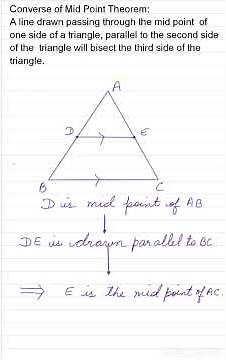 Converse of Mid Point Theorem:
A line drawn passing through the mid point of
one side of a triangle, parallel to the second side
of the triangle will bisect the third side of the
triangle.
A
D E
B C
D is mid point of AB
DE is drawn parallel to BC
⟹ E is the mid point of AC.